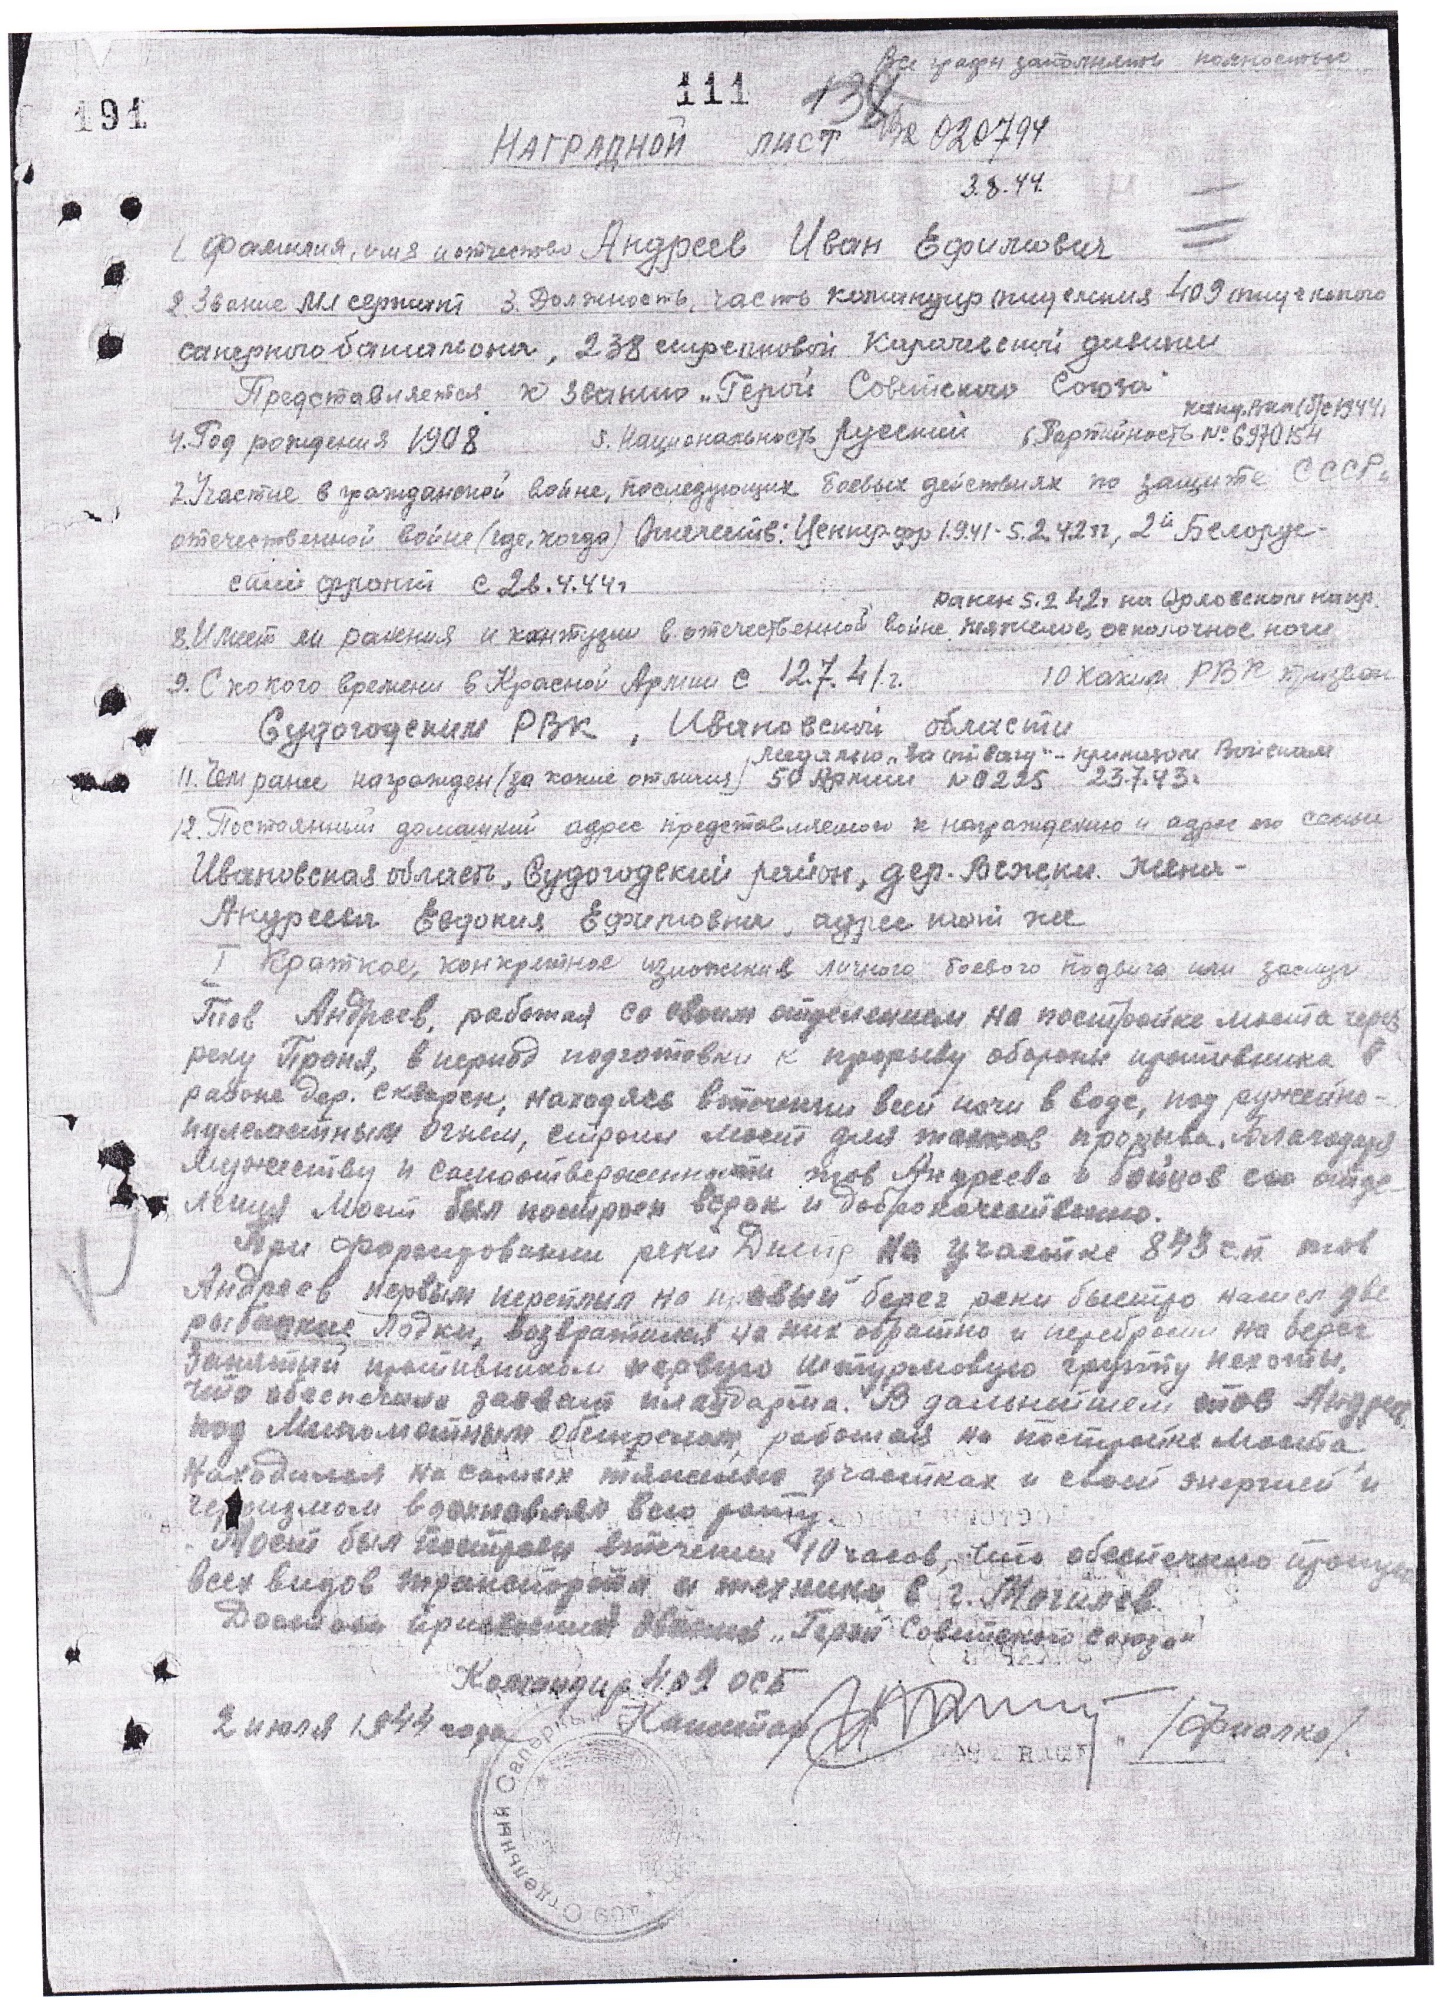 Все графы заполнять полностью
191
111
138
Вх 020794
НАГРАДНОЙ ЛИСТ
3.8.44.
1. Фамилия, имя и отчество Андреев Иван Ефимович
2. Звание мл сержант 3. Должность, часть командир отделения 409 отдельного
саперного батальона, 238 стрелковой Карачевской дивизии
Представляется к званию „Герой Советского Союза"
канд. ВКП(б) с 1944г
4. Год рождения 1908 5. Национальность русский 6. Партийность № 6970154
7. Участие в гражданской войне, последующих боевых действиях по защите СССР и
отечественной войне (где, когда) Отечеств: Центр. фр 1.9.41 - 5.2.42 гг, 2й Белорус-
ский фронт с 26.4.44г
ранен 5.2.42г на Орловском напр.
8. Имеет ли ранения и контузии в отечественной войне тяжелое, осколочное ноги
9. С какого времени в Красной Армии с 12.7.41г. 10 Каким РВК призван
Судогодским РВК, Ивановской области
медалью „За отвагу" - приказом Войскам
11. Чем ранее награжден (за какие отличия) 50 Армии № 0225 23.7.43г.
12. Постоянный домашний адрес представляемого к награждению и адрес его семьи
Ивановская область, Судогодский район, дер. Вежки. Жена -
Андреева Евдокия Ефимовна, адрес тот же
I Краткое, конкретное изложение личного боевого подвига или заслуг
Тов Андреев, работая со своим отделением на постройке моста через
реку Проня, в период подготовки к прорыву обороны противника в
районе дер. Скварск, находясь в течении всей ночи в воде, под ружейно-
пулеметным огнем, строил мост для танков прорыва. Благодаря
мужеству и самоотверженности тов Андреева и бойцов его отде-
ления мост был построен в срок и доброкачественно.
При форсировании реки Днепр на участке 843 с.п тов
Андреев первым переплыл на правый берег реки быстро нашел две
рыбацкие лодки, возвратился на них обратно и перебросил на берег
занятый противником первую штурмовую группу пехоты,
что обеспечило захват плацдарма. В дальнейшем тов Андреев
под минометным обстрелом, работая на постройке моста,
находился на самых тяжелых участках и своей энергией и
героизмом вдохновлял всю роту.
Мост был построен в течении 10 часов, что обеспечило пропуск
всех видов транспорта и техники в г. Могилев.
Достоин присвоения звания „Герой Советского Союза"
Командир 409 ОСБ
2 июля 1944 года Капитан /Фиалко/.
409 Отдельный Саперный